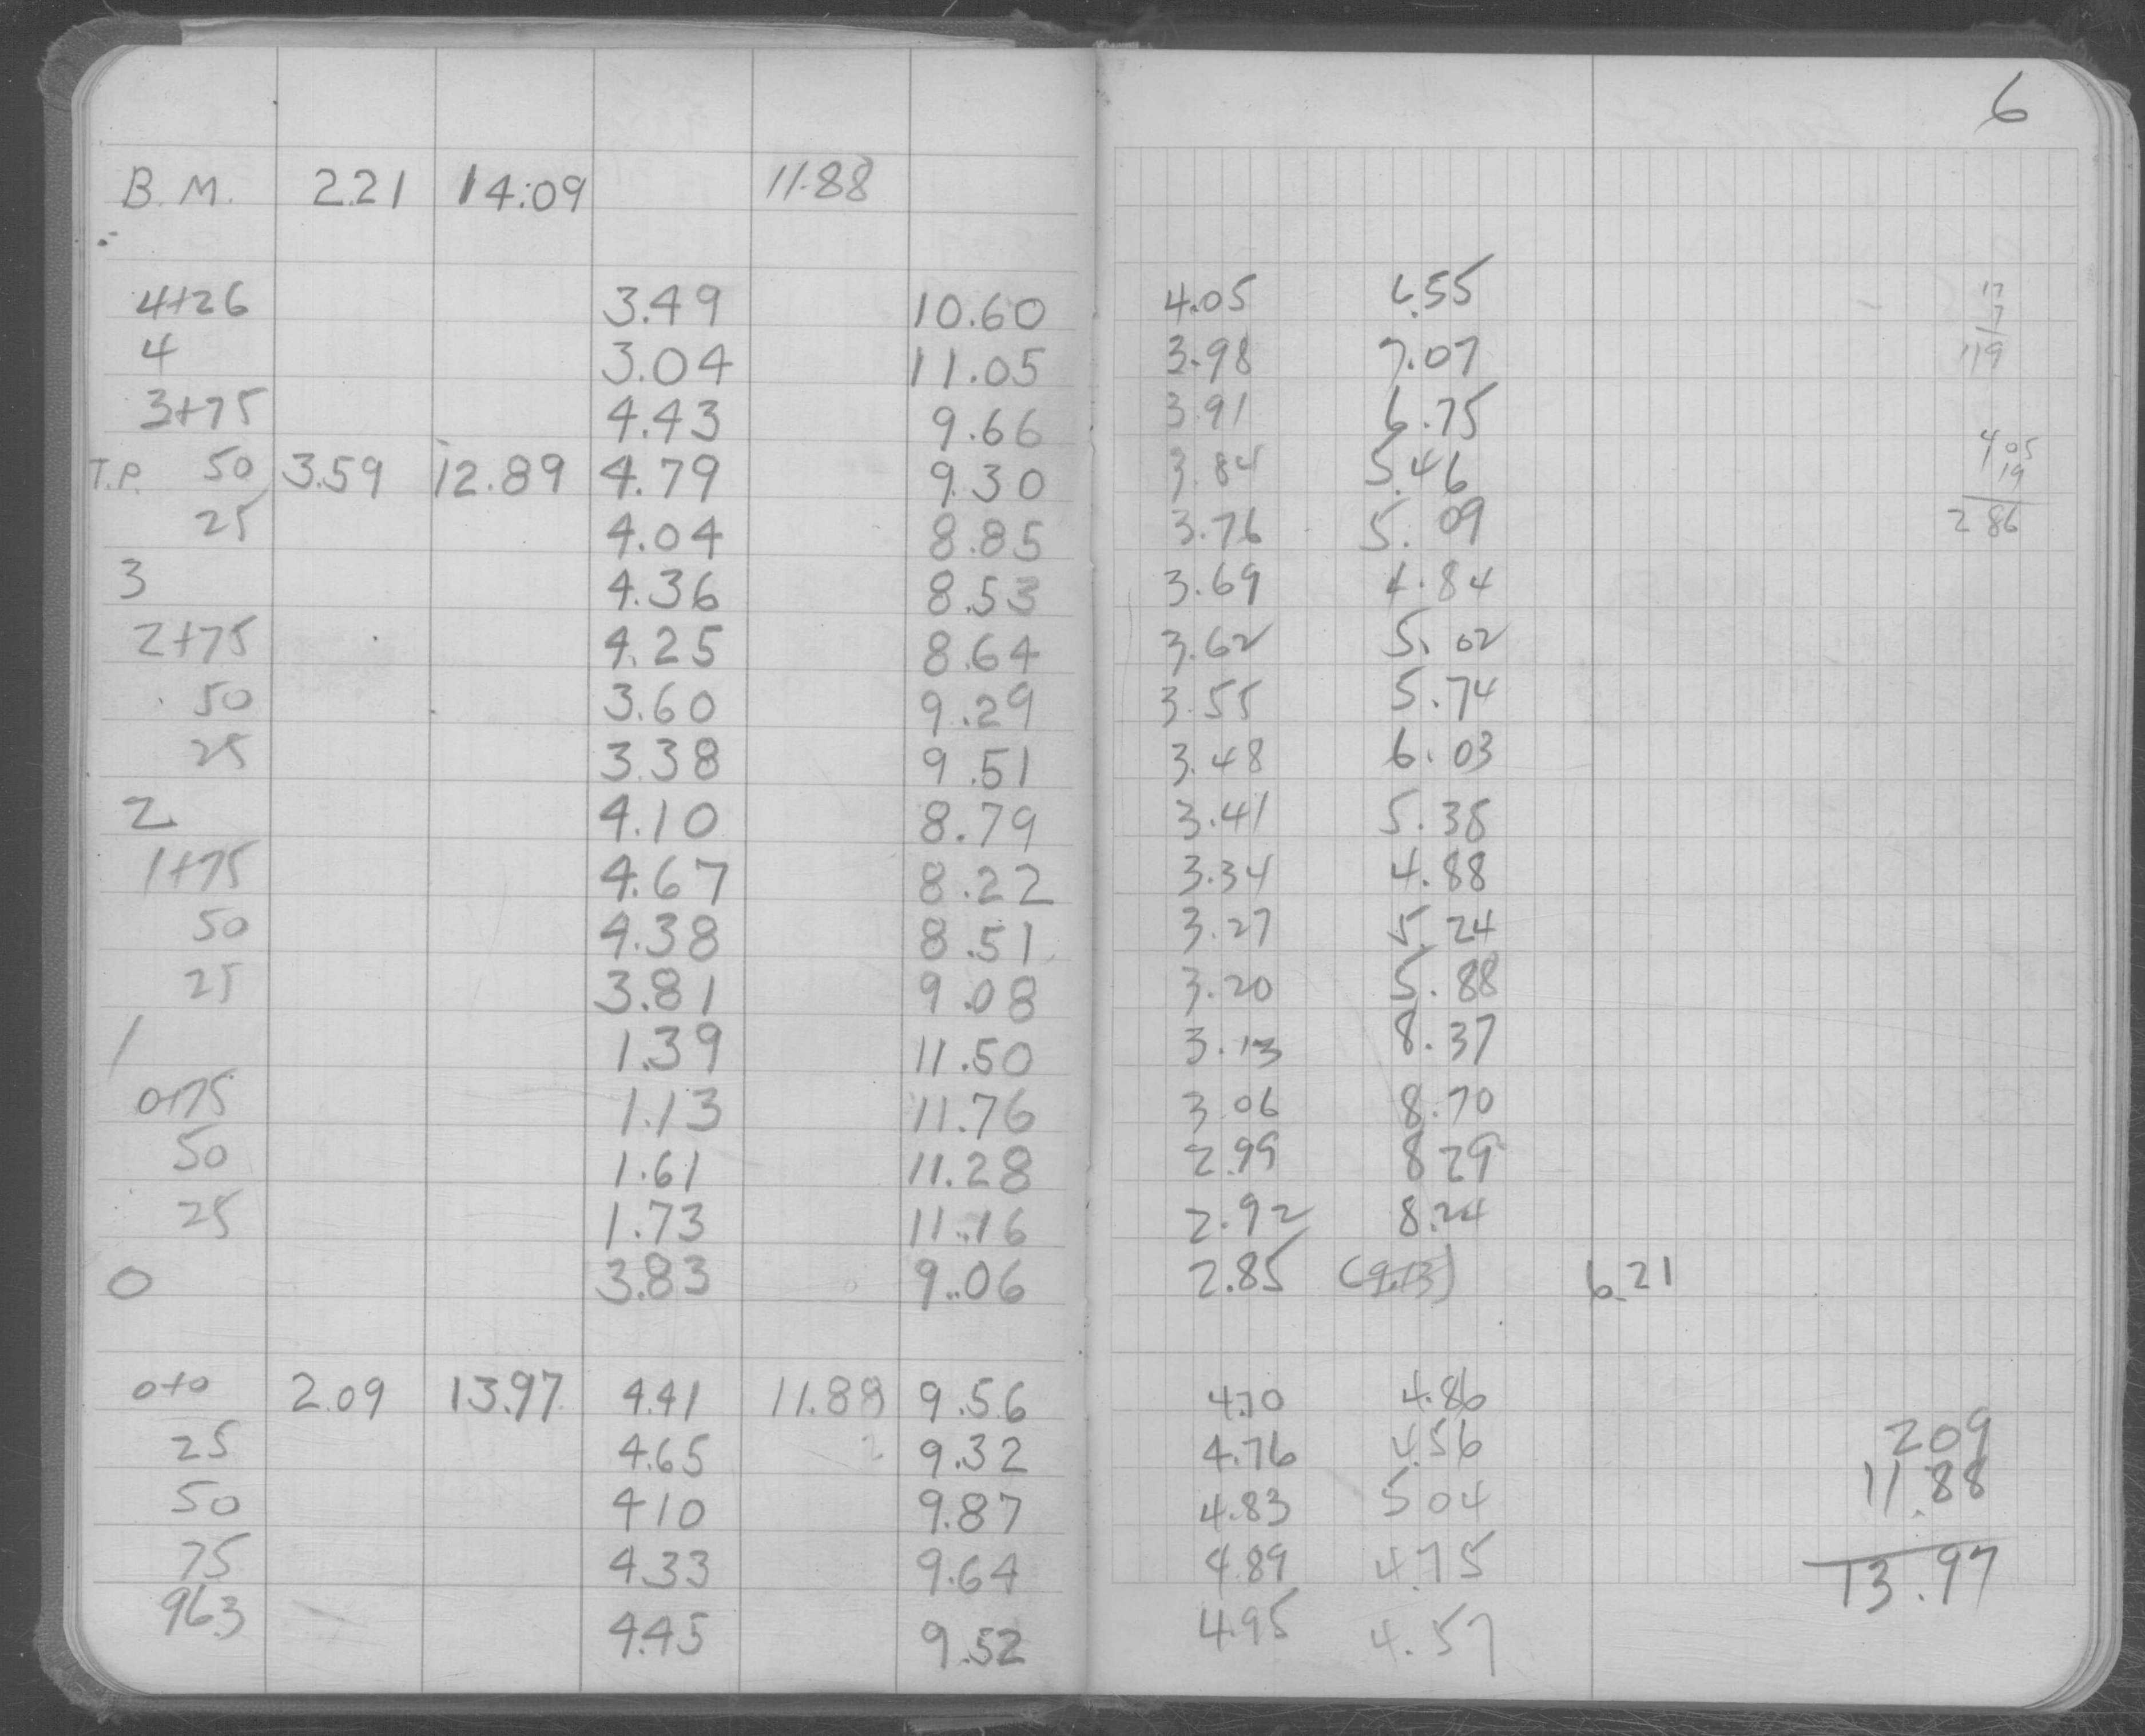 6
B.M. 2.21 14.09 11.88
4+26 3.49 10.60 4.05 6.55
4 3.04 11.05 3.98 7.07
3+75 4.43 9.66 3.91 6.75
T.P. 50 3.59 12.89 4.79 9.30 3.84 5.46
25 4.04 8.85 3.76 5.09
3 4.36 8.53 3.69 4.84
2+75 4.25 8.64 3.62 5.02
50 3.60 9.29 3.55 5.74
25 3.38 9.51 3.48 6.03
2 4.10 8.79 3.41 5.38
1+75 4.67 8.22 3.34 4.88
50 4.38 8.51 3.27 5.24
25 3.81 9.08 3.20 5.88
1 1.39 11.50 3.13 8.37
0+75 1.13 11.76 3.06 8.70
50 1.61 11.28 2.99 8.29
25 1.73 11.16 2.92 8.24
0 3.83 9.06 2.85 6.21
0+0 2.09 13.97 4.41 11.88 9.56 4.70 4.86
25 4.65 9.32 4.76 4.56
50 4.10 9.87 4.83 5.04
75 4.33 9.64 4.89 4.75
96.3 4.45 9.52 4.95 4.57
17
7
119
4 05
1 19
2 86
2 09
11.88
13.97